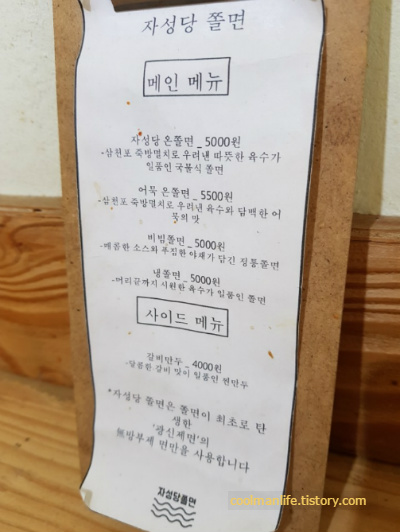 자성당 쫄면
메인 메뉴
자성당 온쫄면 _ 5000원
-삼천포 죽방멸치로 우려낸 따뜻한 육수가
일품인 국물식 쫄면
어묵 온쫄면 _ 5500원
-삼천포 죽방멸치로 우려낸 육수와 담백한 어
묵의 맛
비빔쫄면 _ 5000원
-매콤한 소스와 푸짐한 야채가 담긴 정통쫄면
냉쫄면 _ 5000원
-머리끝까지 시원한 육수가 일품인 쫄면
사이드 메뉴
갈비만두 _ 4000원
-달콤한 갈비 맛이 일품인 찐만두
*자성당 쫄면은 쫄면이 최초로 탄
생한
'광신제면'의
無방부제 면만을 사용합니다
자성당쫄면
coolmanlife.tistory.com